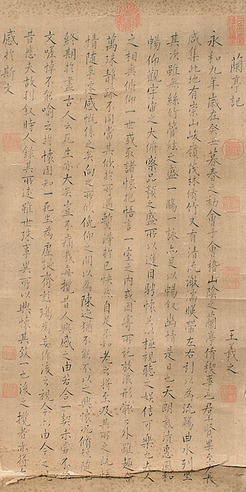 蘭亭記
王羲之
永和九年歲在癸丑暮春之初會于會稽山陰之蘭亭脩稧事也羣賢畢至少長
咸集此地有崇山峻領茂林脩竹又有清流激湍暎帶左右引以為流觴曲水列坐
其次雖無絲竹管絃之盛一觴一詠亦足以暢叙幽情是日也天朗氣清惠風和
暢仰觀宇宙之大俯察品類之盛所以遊目騁懷足以極視聽之娛信可樂也夫人
之相與俯仰一世或取諸懷抱悟言一室之內或因寄所託放浪形骸之外雖趣舍
萬殊靜躁不同當其欣於所遇暫得於己快然自足不知老之將至及其所之既惓
情隨事遷感慨係之矣向之所欣俛仰之間以為陳迹猶不能不以之興懷況脩短隨化
終期於盡古人云死生亦大矣豈不痛哉每攬昔人興感之由若合一契未嘗不臨
文嗟悼不能喻之於懷固知一死生為虛誕齊彭殤為妄作後之視今亦由今之視
昔悲夫故列叙時人錄其所述雖世殊事異所以興懷其致一也後之攬者亦將有
感於斯文